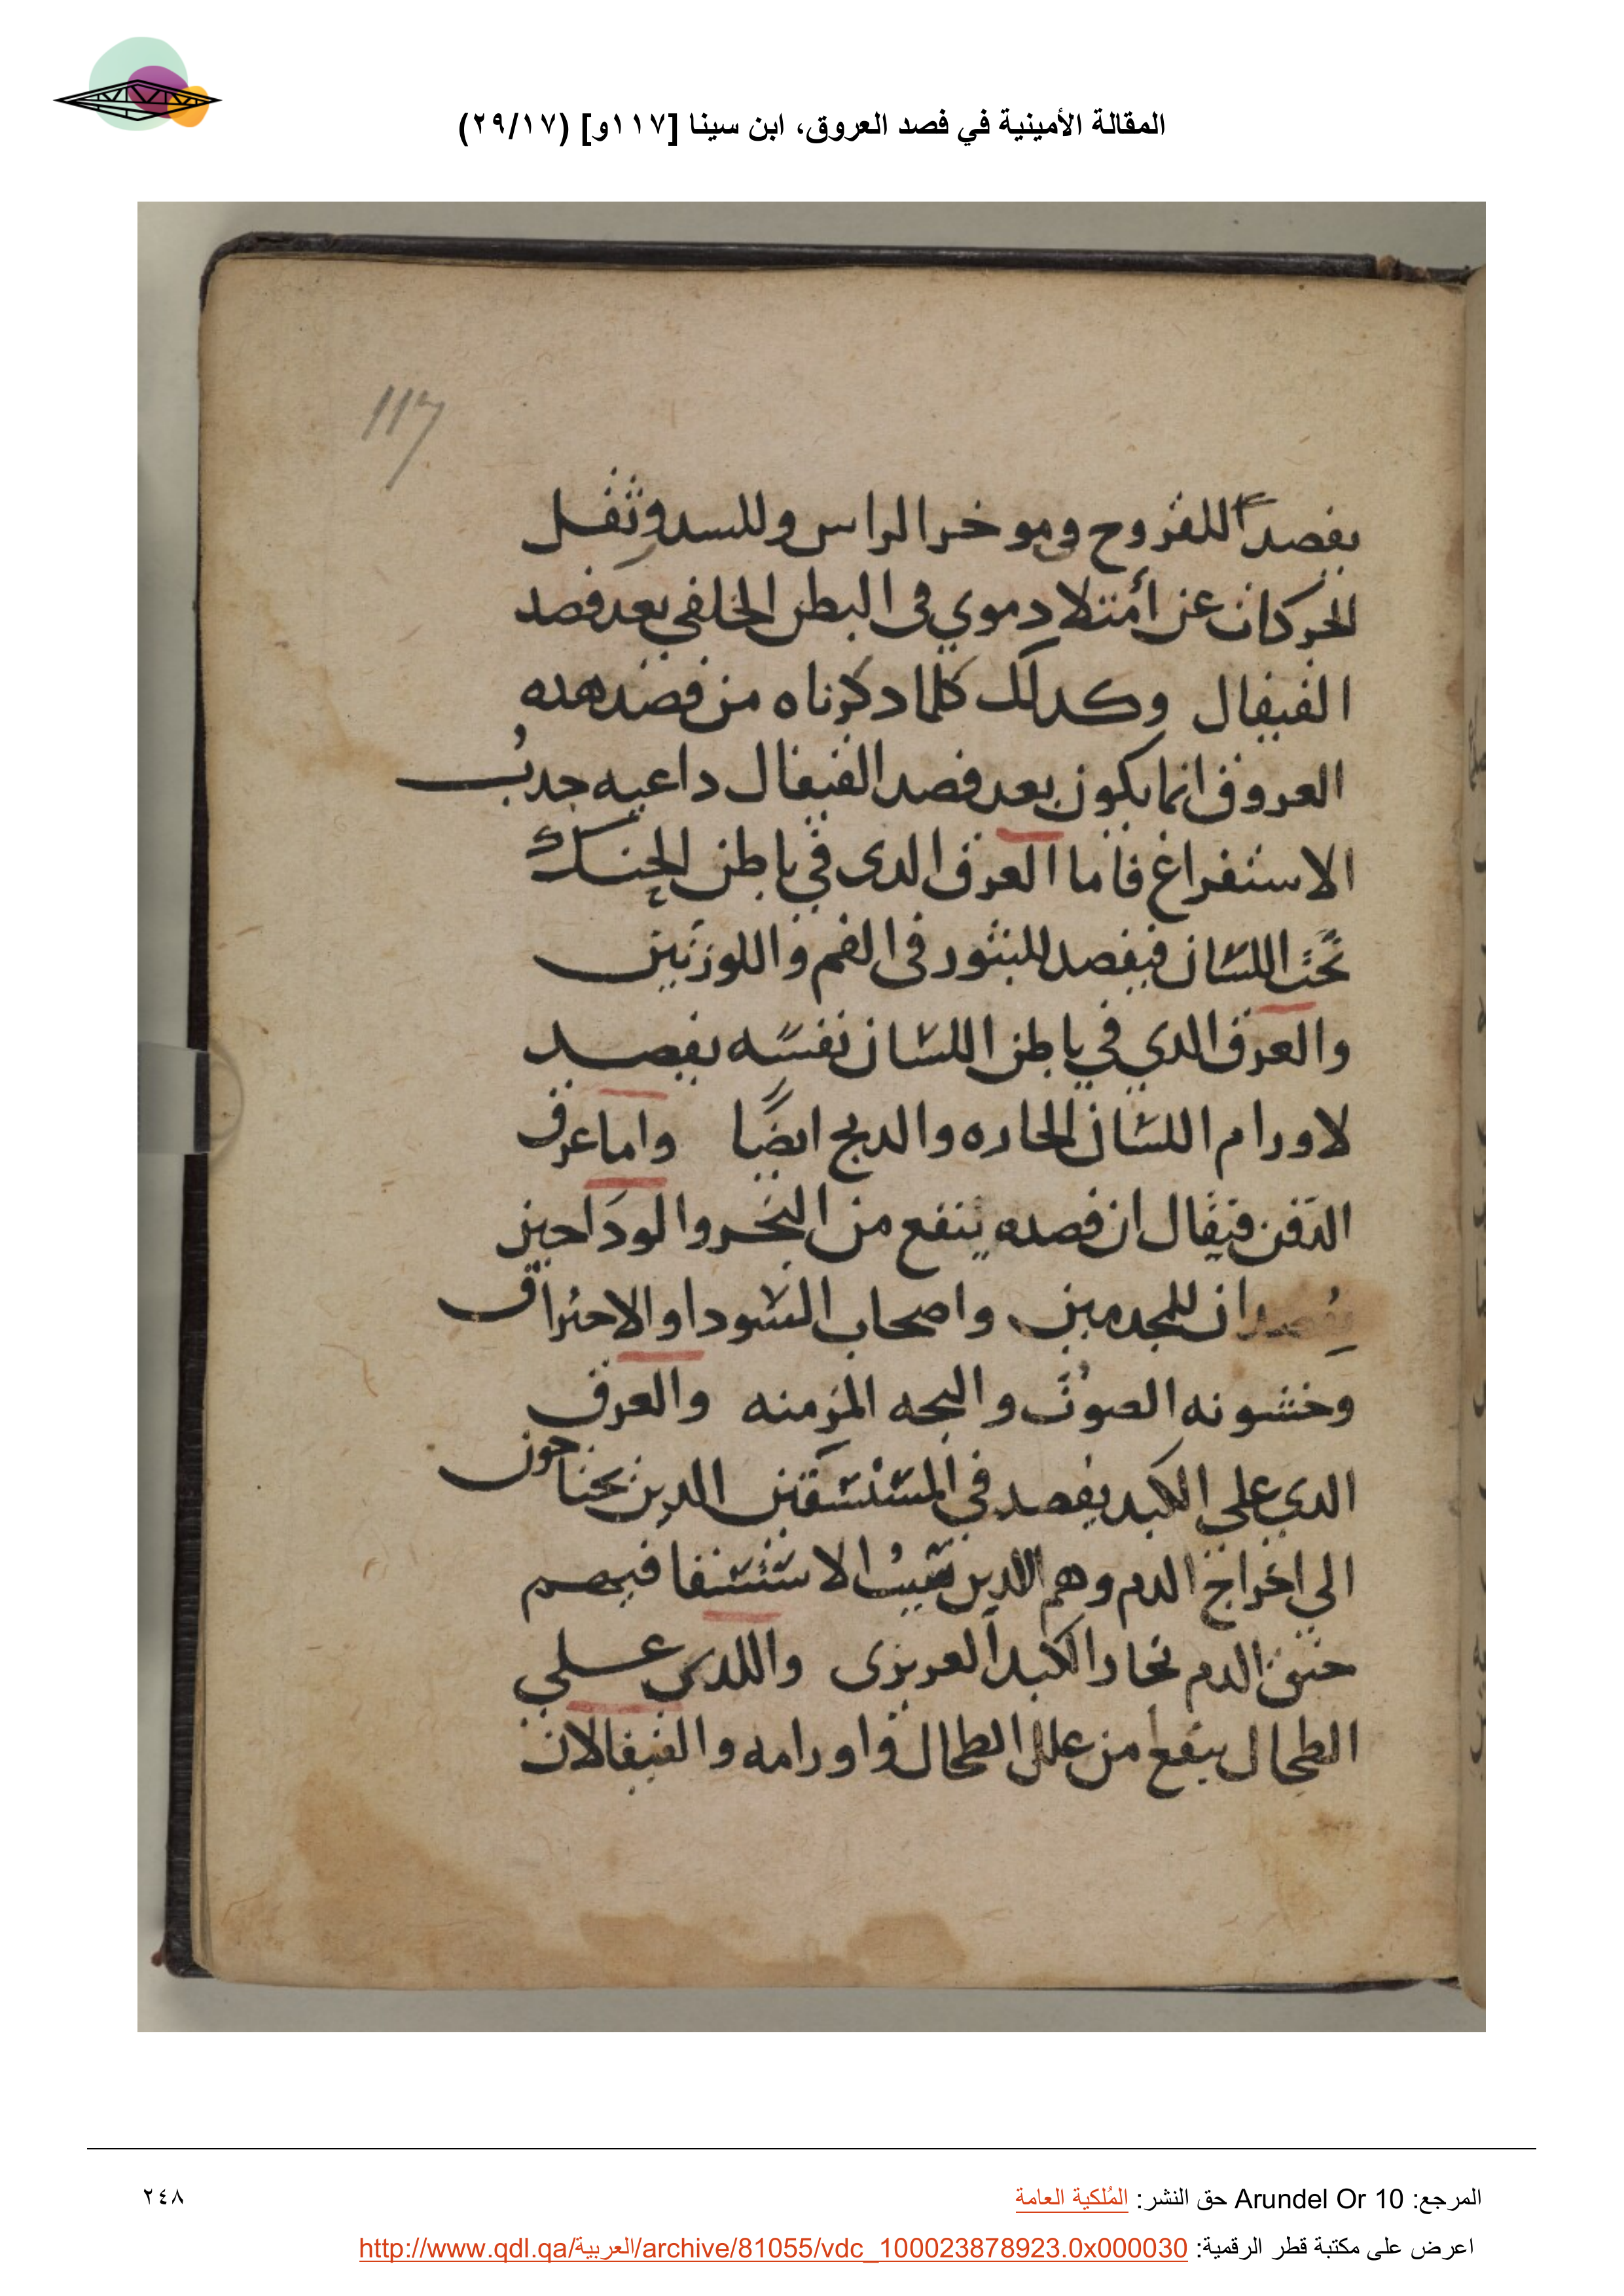 المقالة الأمينية في فصد العروق، ابن سينا [١١٧و] (٢٩/١٧)
117
يفصدا للقروح وموخر الراس وللسدر وثقل
الحركات عن أمتلا دموي فى البطن الخلفي بعد فصد
القيفال وكدلك كلما دكرناه من فصد هده
العروق انما يكون بعد فصد القيفال داعيه جدب
الاستفراغ فاما العرق الدى في باطن الحنك
تحت اللسان فيفصد للبثور فى الفم واللوزتين
والعرق الدي في باطن اللسان نفسه يفصد
لاورام اللسان الحاره والدبح ايضًا واما عرق
الدقن فيقال ان فصده ينفع من البخر والوداجين
يفصدان للمجدمين واصحاب السودا والاحتراق
وخشونه الصوت والبحه المزمنه والعرق
الدي علي الكبد يفصد في المستسقين الدين يحتاجون
الي اخراج الدم وهم الدين سبب الاستسقا فيهم
خنق الدم لحار الكبد العريزى واللدي علي
الطحال ينفع من علل الطحال واورامه والقيفالان
المرجع: Arundel Or 10 حق النشر: المُلكية العامة
٢٤٨
اعرض على مكتبة قطر الرقمية: http://www.qdl.qa/العربية/archive/81055/vdc_100023878923.0x000030